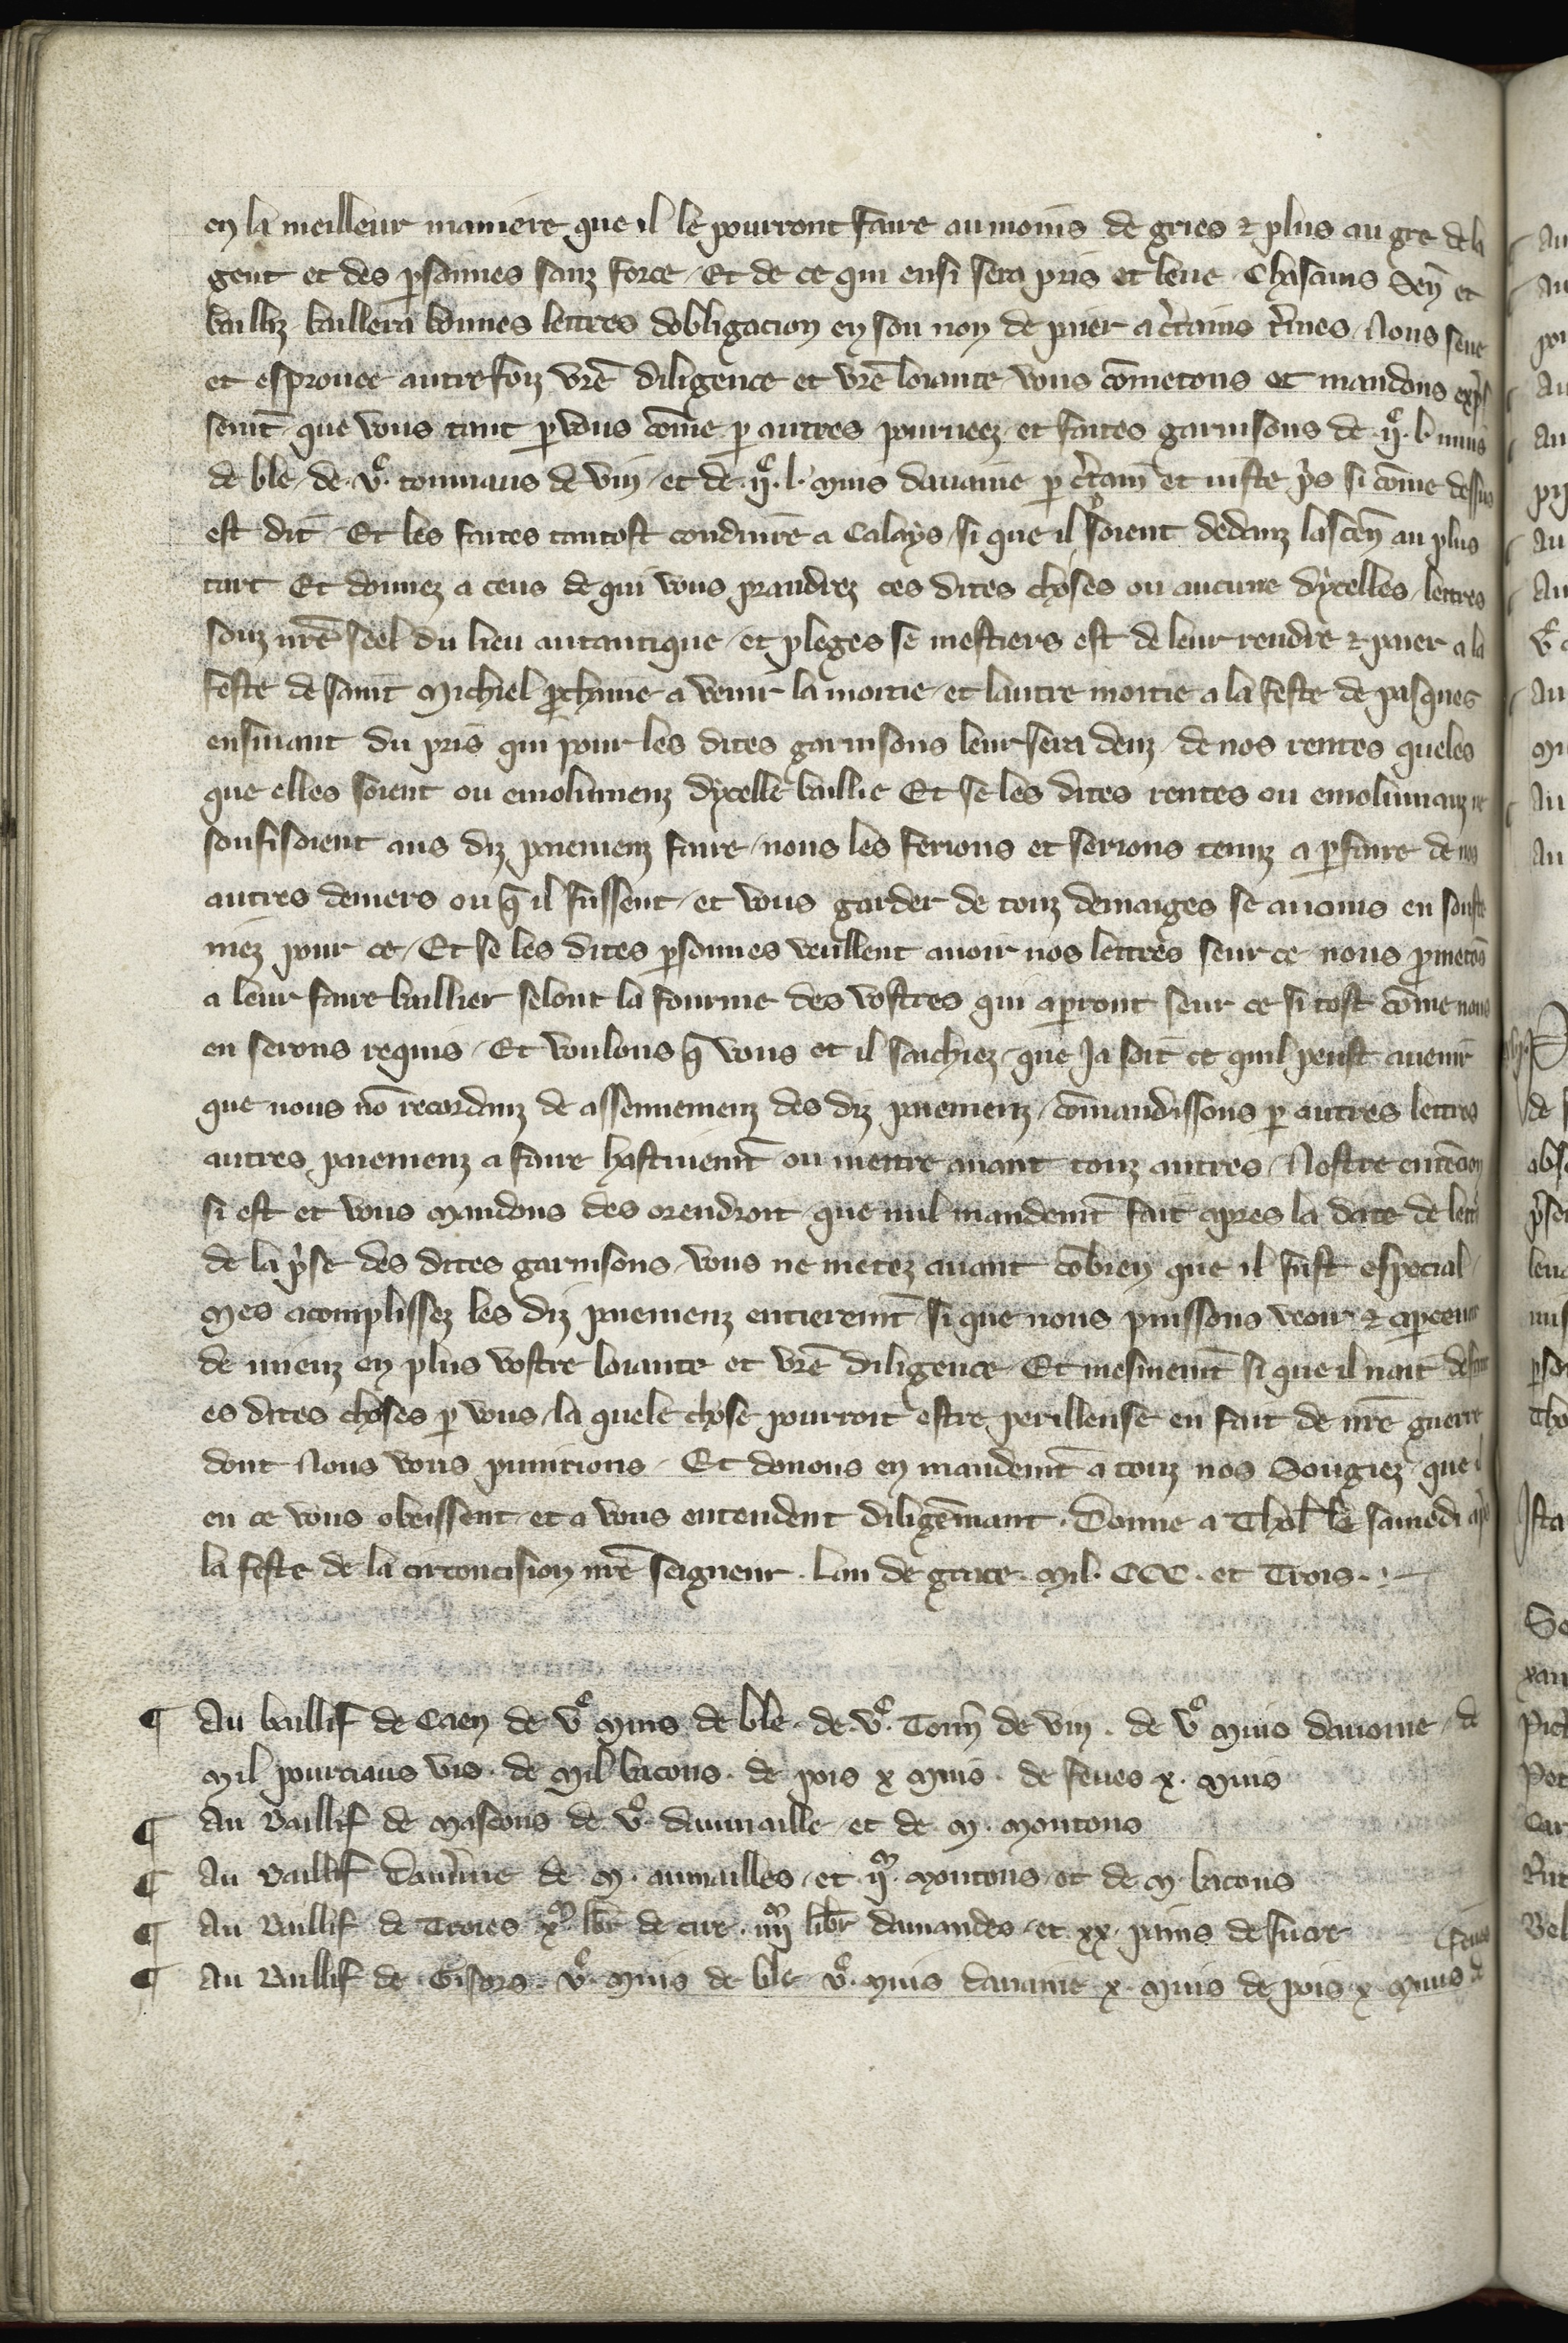 en la meilleur maniere que il le pourront faire au moins de gries ⁊ plus au gre de la
gent et des p̱sonnes sanz force / Et de ce qui ensi sera pris et leue / Chascuns Sen̄ et
bailliz baillera bonnes lettres dobligacion en son non de paier a c̾tains t̾mes / Nous seue
et esprouee autrefoiz vr̄e diligence et vr̄e loiaute / vous cōmetons et mandons exp̾s
semt̄ que vous tant p̱ vous cōme p̱ autres pourueez / et faites garnisons de .ijͨ. l. muis
de ble / de .vͨ. tonniaus de vin / et de .ijͨ. l. muis dauaine p̱ c̾tain et iuste p̾s si cōme dessus
est dit / Et les faites tantost conduire a Calays / si que il soient dedanz lascen̄ au plus
tart Et donnez a ceus de qui vous prandrez ces dites choses ou aucune dycelles / lettres
souz nr̄e seel du lieu autantique / et pleges se mestiers est de leur rendre ⁊ paier a la
feste de saint Michiel p̱chaine a venir la moitie / et lautre moitie a la feste de pasques
ensuiant du pris qui pour les dites garnisons leur sera deuz / de nos rentes queles
que elles soient ou emolumenz dycelle baillie Et se les dites rentes ou emolumanz ne
soufisoient aus diz paiemenz faire / nous les ferions et serions tenuz a p̱faire de nos
autres deniers ou q̄ il fussent / et vous garder de touz demaiges se aucuns en souste
niez pour ce / Et se les dites p̱sonnes veullent auoir nos lettres seur ce / nous p̱metōs
a leur faire baillier selont la fourme des vostres qui ap̱ront seur ce si tost cōme nous
en serons requis / Et voulons q̄ vous et il saichiez / que Ja soit ce quil peust auenir
que nous nō recordanz de assenemenz des diz paiemenz / cōmandissons p̱ autres lettres
autres paiemenz a faire hastiuemt̄ ou mettre auant touz autres / Nostre entēcion
si est et vous mandons des orendroit / que nul mandemt̄ fait apres la date de lett̾
de la p̾se des dites garnisons / vous ne metez auant cōbien que il fust especial /
Mes acomplissez les diz paiemenz entieremt̄ si que nous puissons veoir ⁊ ap̱ceuoir
de mieuz en plus vostre loiaute et vr̄e diligence / Et mesmemt̄ si que il nait defaut
es dites choses p̱ vous / la quele chose pourroit estre perilleuse en fait de nr̄e guerre
dont Nous vous punirions / Et donons en mandemt̄ a touz nos Sougiez / que il
en ce vous obeissent et a vous entendent diligēmant . Donne a Thol̄ le samedi ap̾s
la feste de la circoncision nr̄e seigneur . Lan de grace . Mil . CCC . et Trois .
¶ Au baillif de Caen de vͨ muis de ble . de .vͨ. Tonn̄ de vin . de vͨ muis dauoine / de
Mil pourciaus vis . de Mil bacons . de pois x muis . de feues .x. muis
¶ Au Baillif de Mascons de .vͨ. daumaille / et de .M. moutons
¶ Au Baillif Dauu̾ne de .M. aumailles / et .ijᵐ. Moutons / et de M. bacons
¶ Au Baillif de Troies .xᵐ. libr̄ de cire . iiijᵐ libr̄ damandes / et xx . pains de sucre
¶ Au Baillif de Gisors . vͨ. muis de ble vͨ. muis dauaine x. muis de pois .x. muis de
(feues